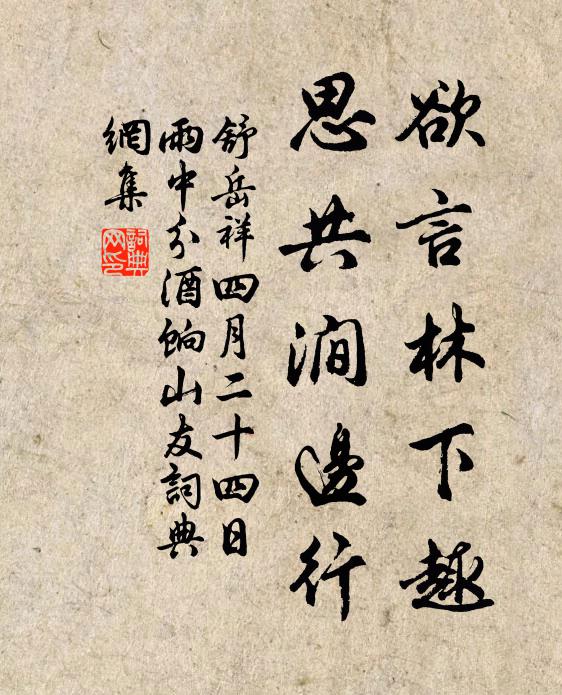 欲言林下趣
思共澗邊行
舒岳祥四月二十四日
雨中分酒餉山友詞典
網集
詞典
网印